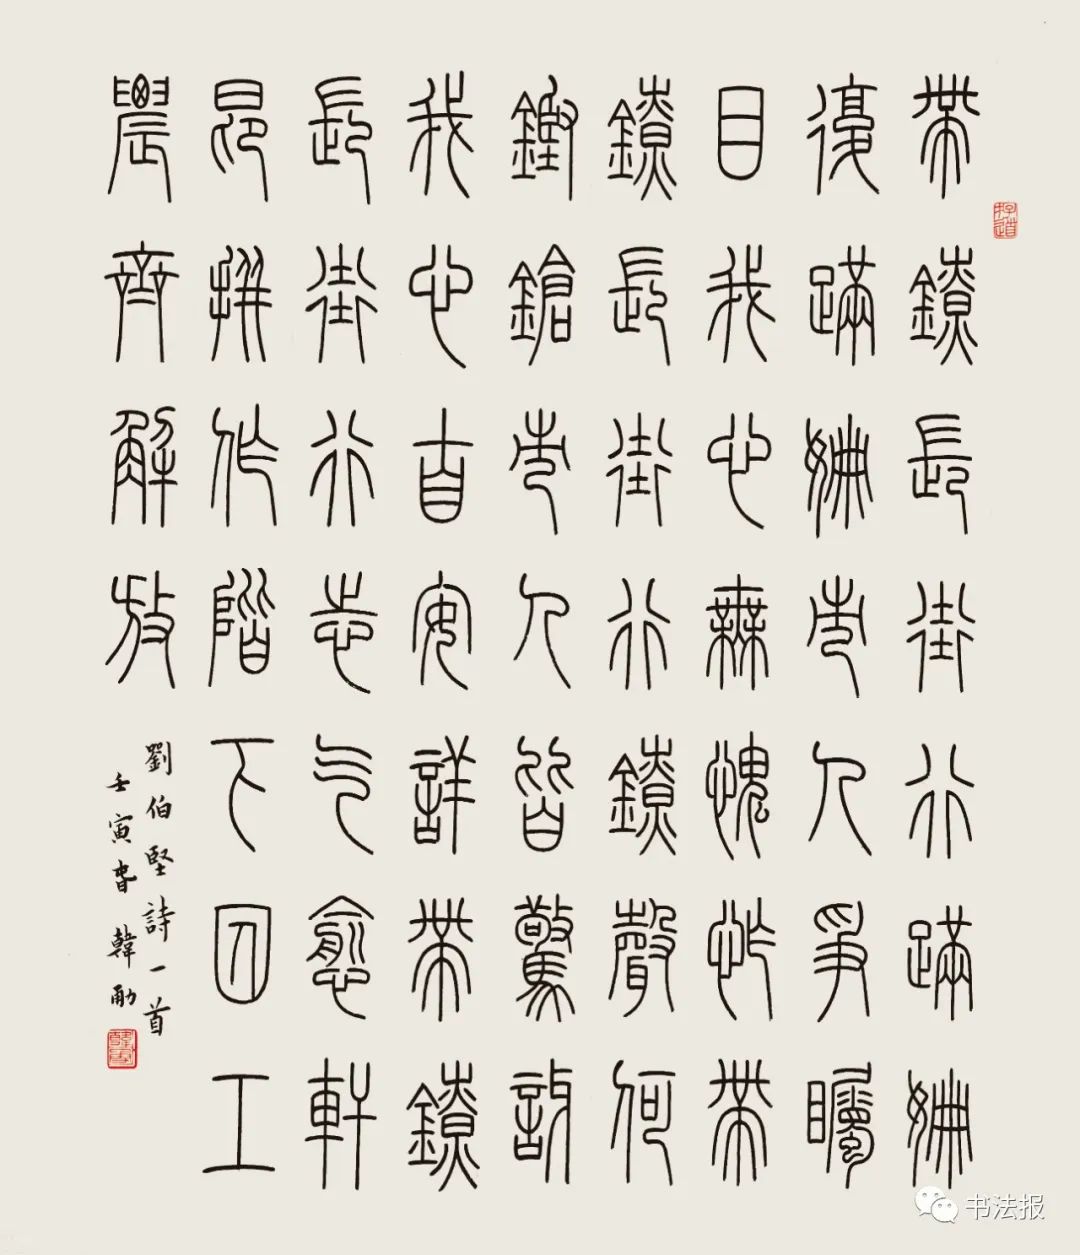 帶鐐長街行蹣姍
復蹣姍市人爭矚
目我心無愧怍帶
鐐長街行鐐聲何
鏗鎗市人皆驚訝
我心自安詳帶鐐
長街行志气愈軒
昂拼作階下囚工
農齊解放
劉伯堅詩一首
壬寅春韓勇
书法报